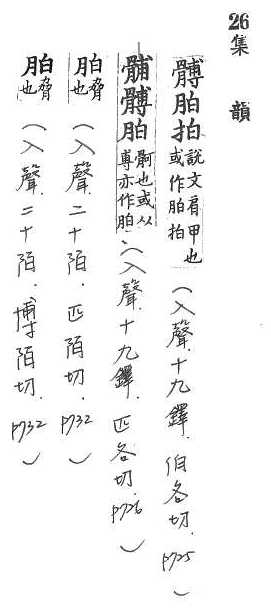 26集　韻
髆胉拍說文肩甲也或作胉拍（入聲．十九鐸．伯各切．p725）
髆胉髆也或从亦作胉．（入聲．十九鐸．匹各切．p726）
胉脅也（入聲．二十陌．匹陌切．p732）
胉脅也（入聲．二十陌．博陌切．p732）